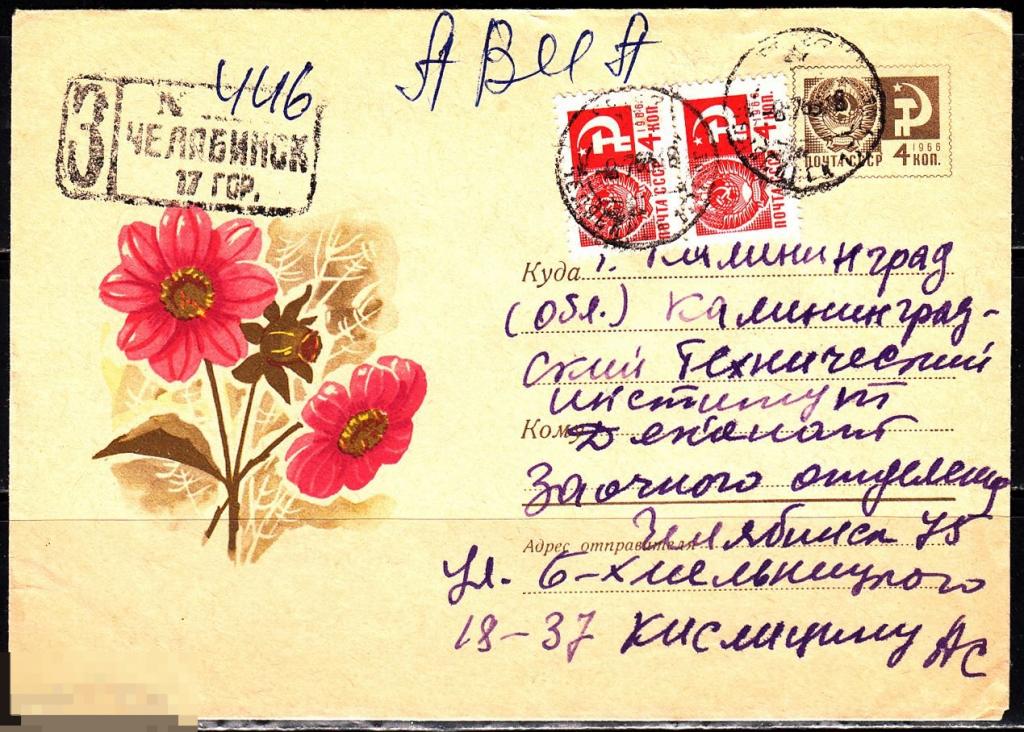 АВИА
446
З
ЧЕЛЯБИНСК
17 ГОР.
1966
4 КОП.
ПОЧТА СССР
1966
4 КОП.
ПОЧТА
ПОЧТА СССР
4 КОП.
1966
Куда г. Калининград
(обл.) Калининград-
ский Технический
институт
Кому Деканат
Заочного отделения
Адрес отправителя Челябинск 75
ул. Б-Хмельницкого
18-37 Кислицину АС